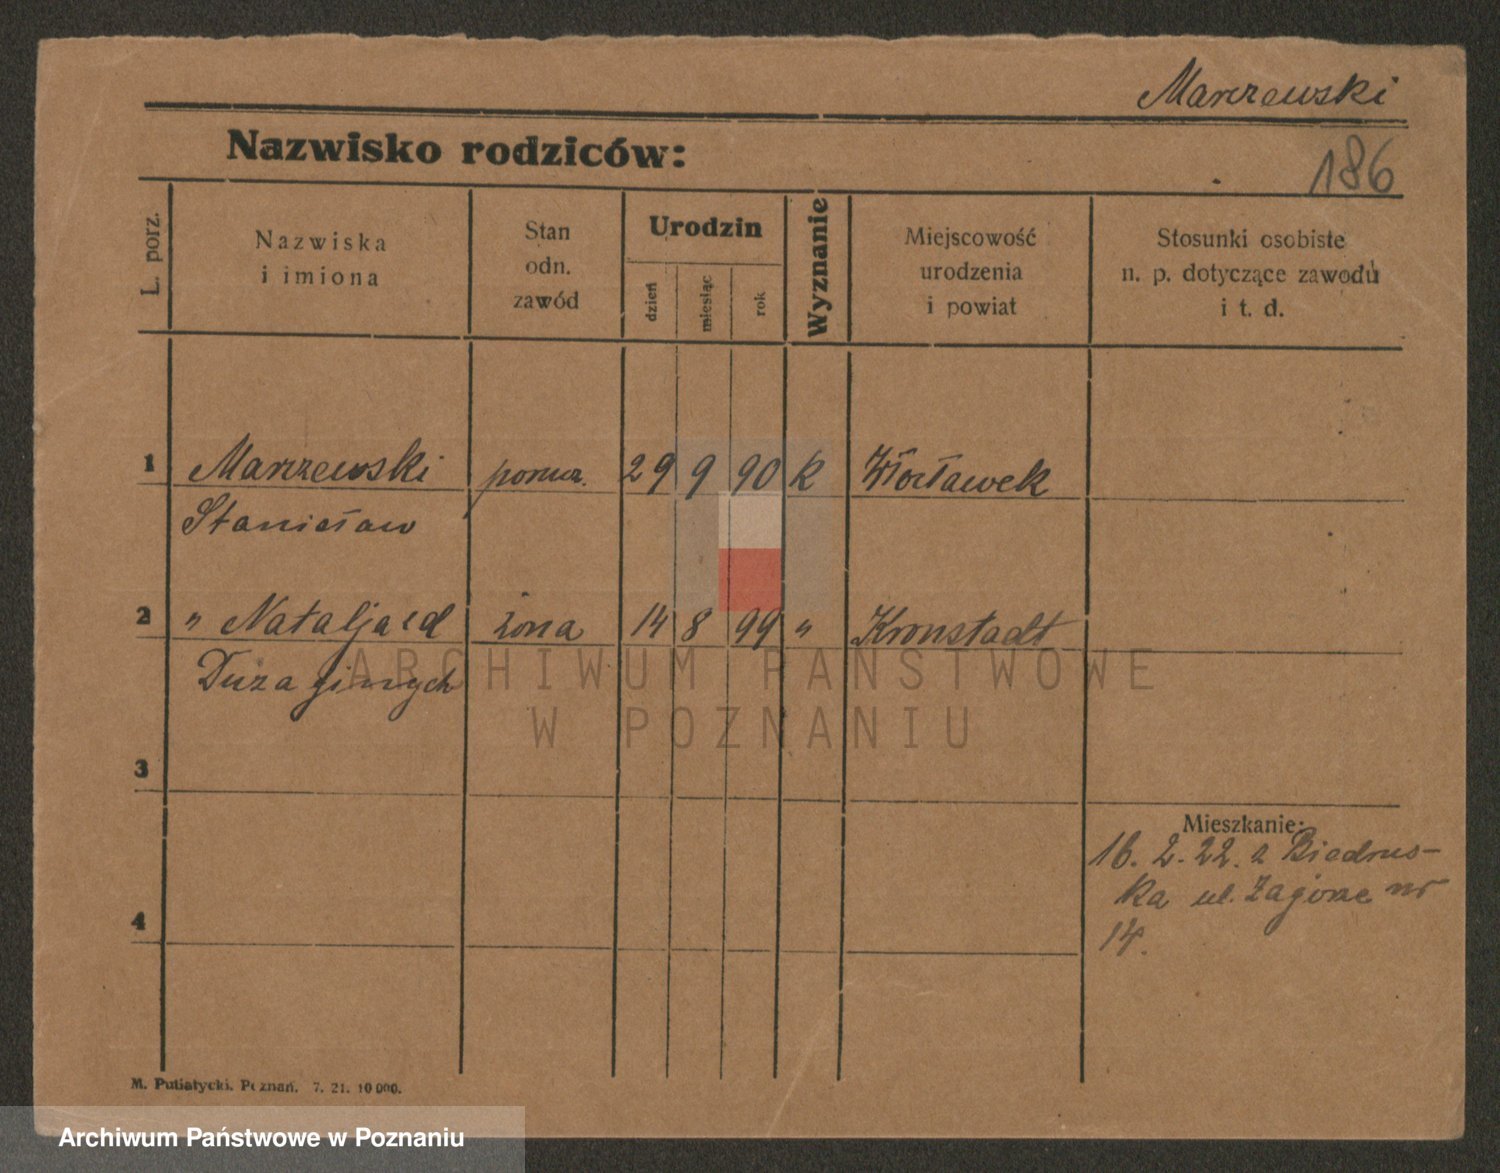 Marzewski
186
Nazwisko rodziców:
L. porz.
Nazwiska
i imiona
Stan
odn.
zawód
Urodzin
dzień
miesiąc
rok
Wyznanie
Miejscowość
urodzenia
i powiat
Stosunki osobiste
n. p. dotyczące zawodu
i t. d.
1 Marzewski porucz. 29 9 90 k Włocławek
Stanisław
2 " Natalja żona 14 8 99 " Kronstadt
3
ARCHIWUM PAŃSTWOWE
W POZNANIU
Mieszkanie:
16. 2. 22. z Biedrus-
ka ul. nr
14.
4
M. Putiatycki, Poznań. 7. 21. 10 000.
Archiwum Państwowe w Poznaniu